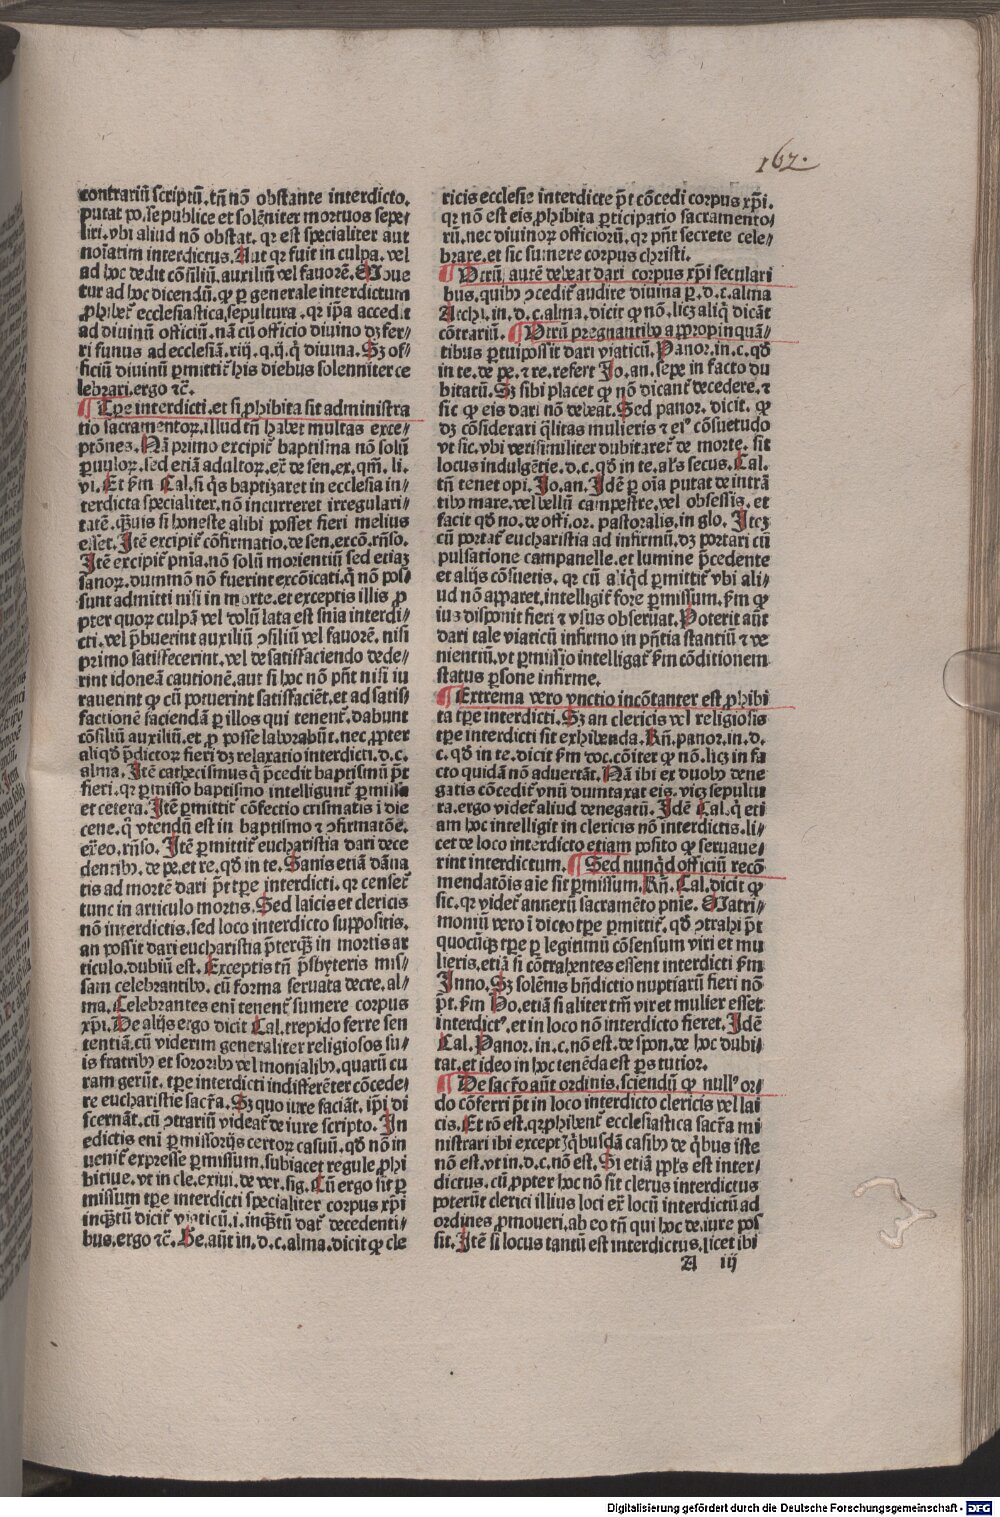 162.
contrariũ scriptũ.tñ nõ obstante interdicto.
putat posse publice et solẽniter mortuos sepe⸗
liri.vbi aliud nõ obstat.qr est specialiter aut
noĩatim interdictus.Aut qr fuit in culpa.vel
ad hoc dedit cõsiliũ.auxiliũ vel fauorẽ.Moue
tur ad hoc dicendũ.ꝙ ꝑ generale interdictum
ꝓhibet᷑ ecclesiastica sepultura.qr ip̃a accedit
ad diuinũ officiũ.nã cũ officio diuino dꝫ fer⸗
ri funus ad ecclesiã.xiij.q.ij.q̃ diuina.Sꝫ of⸗
ficiũ diuinũ ꝑmittit᷑ his diebus solenniter ce
lebrari.ergo ⁊c̃.
¶ Tꝑe interdicti.et si ꝓhibita sit administra
tio sacramentoꝝ.illud tñ habet multas exce⸗
ptões.Nã primo excipit᷑ baptisma nõ solũ
ꝑuuloꝝ.sed etiã adultoꝝ.ex̃ de sen.ex.qm̃.li.
vi.Et ẜm Cal.si q̃s baptizaret in ecclesia in⸗
terdicta specialiter.nõ incurreret irregulari⸗
tatẽ.q̃uis si honeste alibi posset fieri melius
esset.Itẽ excipit᷑ cõfirmatio.de sen.excõ.rñso.
Itẽ excipit᷑ pnĩa.nõ solũ morientiũ sed etiaꝫ
sanoꝝ.dummõ nõ fuerint excõicati.q̃ nõ pos⸗
sunt admitti nisi in morte.et exceptis illis ꝓ
pter quoꝝ culpã vel dolũ lata est snĩa interdi⸗
cti.vel p̃buerint auxiliũ ↄsiliũ vel fauorẽ.nisi
primo satisfecerint.vel de satisfaciendo dede⸗
rint idoneã cautionẽ.aut si hoc nõ pñt nisi iu
rauerint ꝙ cũ potuerint satisfaciẽt.et ad satis⸗
factionẽ faciendã ꝑ illos qui tenent᷑.dabunt
cõsiliũ auxiliũ.et ꝓ posse laborabũt.nec ꝓpter
aliqđ p̃dictoꝝ fieri dꝫ relaxatio interdicti.d.c.
alma.Itẽ cathecismus q̃ p̃cedit baptismũ p̃t
fieri.qr ꝑmisso baptismo intelligunt᷑ ꝑmissa
et cetera.Itẽ ꝑmittit᷑ cõfectio crismatis ĩ die
cene.q̃ vtendũ est in baptismo ⁊ ↄfirmatõe.
ex̃ eo.rñso.Itẽ ꝑmittit᷑ eucharistia dari dece
dentibꝰ.de pe.et re.qđ in te.Sanis etiã dãna
tis ad mortẽ dari p̃t tꝑe interdicti.qr censet᷑
tunc in articulo mortis.Sed laicis et clericis
nõ interdictis.sed loco interdicto suppositis.
an possit dari eucharistia p̃terq̃ꝫ in mortis ar
ticulo.dubiũ est.Exceptis tñ p̃sbyteris mis⸗
sam celebrantibꝰ.cũ forma seruata decre.al⸗
ma.Celebrantes enĩ tenent᷑ sumere corpus
xp̃i.De alijs ergo dicit Cal.trepido ferre sen
tentiã.cũ viderim generaliter religiosos su⸗
is fratribꝰ et sororibꝰ vel monialibꝰ.quarũ cu
ram gerũt.tꝑe interdicti indifferẽter cõcede⸗
re eucharistie sacr̃a.Sꝫ quo iure faciãt.ip̃i di
scernãt.cũ ↄtrariũ videat᷑ de iure scripto.In
edictis enĩ ꝑmissorijs certoꝝ casuũ.qđ nõ in
uenit᷑ expresse ꝑmissum.subiacet regule ꝓhi
bitiue.vt in cle.exiui.de ver.sig.Cũ ergo sit ꝑ
missum tꝑe interdicti specialiter corpus xp̃i
inq̃tũ dicit᷑ viaticũ.i.inq̃tũ dat᷑ decedenti⸗
bus.ergo ⁊c̃.He.aũt in.d.c.alma.dicit ꝙ cle
ricis ecclesie interdicte p̃t cõcedi corpus xp̃i.
qr nõ est eis ꝓhibita ꝑticipatio sacramento⸗
rũ.nec diuinoꝝ officiorũ.qr pñt secrete cele⸗
brare.et sic sumere corpus christi.
¶ Vtrũ autẽ debeat dari corpus xp̃i seculari
bus.quibꝰ ↄcedit᷑ audire diuina ꝑ.d.c.alma
Archi.in.d.c.alma.dicit ꝙ nõ.licꝫ aliq̃ dicãt
cõtrariũ.¶ Vtrũ pregnantibꝰ appropinquã⸗
tibus ꝑtui possit dari viaticũ.Panor.in.c.qđ
in te.de pe.⁊ re.refert Jo.an.sepe in facto du
bitatũ.Sꝫ sibi placet ꝙ nõ dicant᷑ decedere.⁊
sic ꝙ eis dari nõ debeat.Sed panor.dicit.ꝙ
dꝫ cõsiderari q̃litas mulieris ⁊ eiꝰ cõsuetudo
vt sic.vbi verisimiliter dubitaret᷑ de morte.sit
locus indulgẽtie.d.c.qđ in te.al̃s secus.Cal.
tñ tenet opi.Jo.an.Idẽ ꝑ oĩa putat de intrã
tibꝰ mare.vel bellũ campestre.vel obsessis.et
facit qđ no.de offi.or.pastoralis.in glo.Iteꝫ
cũ portat᷑ eucharistia ad infirmũ.dꝫ portari cũ
pulsatione campanelle.et lumine p̃cedente
et alijs cõsuetis.qr cũ aliq̃d ꝑmittit᷑ vbi ali⸗
ud nõ apparet.intelligit᷑ fore ꝑmissum.ẜm ꝙ
ius disponit fieri ⁊ vsus obseruat.Poterit aũt
dari tale viaticũ infirmo in pñtia stantiũ ⁊ ve
nientiũ.vt ꝑmissio intelligat᷑ ẜm cõditionem
status ꝑsone infirme.
¶ Extrema vero vnctio incõtanter est ꝓhibi
ta tꝑe interdicti.Sꝫ an clericis vel religiosis
tꝑe interdicti sit exhibenda.Rñ.panor.in.d.
c.qđ in te.dicit ẜm doc.cõiter ꝙ nõ.licꝫ in fa
cto quidã nõ aduertãt.Nã ibi ex duobꝰ dene
gatis cõcedit᷑ vnũ duntaxat eis.viꝫ sepultu
ra.ergo videt᷑ aliud denegatũ.Idẽ Cal.q̃ eti
am hoc intelligit in clericis nõ interdictis.li⸗
cet de loco interdicto etiam posito ꝙ seruaue⸗
rint interdictum.¶ Sed nunq̃d officiũ recõ
mendatõis aĩe sit ꝑmissum.Rñ.Cal.dicit ꝙ
sic.qr videt᷑ annexũ sacramẽto pnĩe.Matri⸗
moniũ vero ĩ dicto tꝑe ꝑmittit᷑.qđ ↄtrahi p̃t
quocũqꝫ tꝑe ꝑ legitimũ cõsensum viri et mu
lieris.etiã si cõtrahentes essent interdicti ẜm
Inno.Sꝫ solẽnis bñdictio nuptiarũ fieri nõ
p̃t.ẜm Ho.etiã si aliter tm̃ vir et mulier esset
interdictꝰ.et in loco nõ interdicto fieret.Idẽ
Cal.Panor.in.c.nõ est.de spon.de hoc dubi⸗
tat.et ideo in hoc tenẽda est ꝑs tutior.
¶ De sacr̃o aũt ordinis.sciendũ ꝙ nullꝰ or⸗
do cõferri p̃t in loco interdicto clericis vel lai
cis.Et rõ est.qr ꝓhibent᷑ ecclesiastica sacr̃a mi
nistrari ibi exceptꝭ q̃busdã casibꝰ de q̃bus iste
nõ est.vt in.d.c.nõ est.Si etiã ppl̃s est inter⸗
dictus.cũ ꝓpter hoc nõ sit clerus interdictus
poterũt clerici illius loci ex̃ locũ interdictũ ad
ordines ꝓmoueri.ab eo tñ qui hoc de.iure pos
sit.Itẽ si locus tantũ est interdictus.licet ibi
A iij
Digitalisierung gefördert durch die Deutsche Forschungsgemeinschaft - DFG